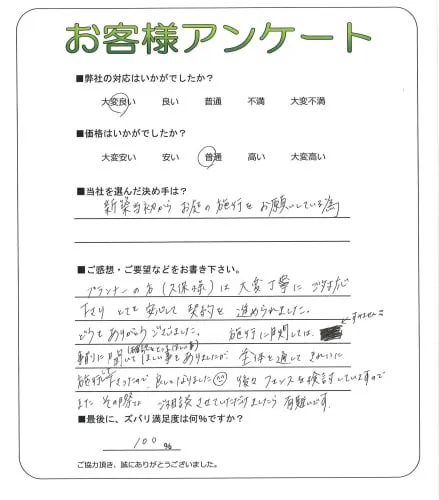 お客様アンケート
■弊社の対応はいかがでしたか?
大変良い 良い 普通 不満 大変不満
■価格はいかがでしたか?
大変安い 安い 普通 高い 大変高い
■当社を選んだ決め手は?
新築当初からお庭の施行をお願いしている為
■ご感想・ご要望などをお書き下さい。
プランナーの方(久保様)は大変丁寧にご対応
下さり とても安心して契約を進められました。
どうもありがとうございました。 施行に関しては、
すみません
(確認をとってほしい事)
事前に聞いてほしい事もありましたが 全体を通して きれいに
施行下さったので、良しとなりました 後々フェンスを検討していますので
また その際は ご相談させていただけましたら有難いです。
■最後に、ズバリ満足度は何%ですか?
100%
ご協力頂き、誠にありがとうございました。